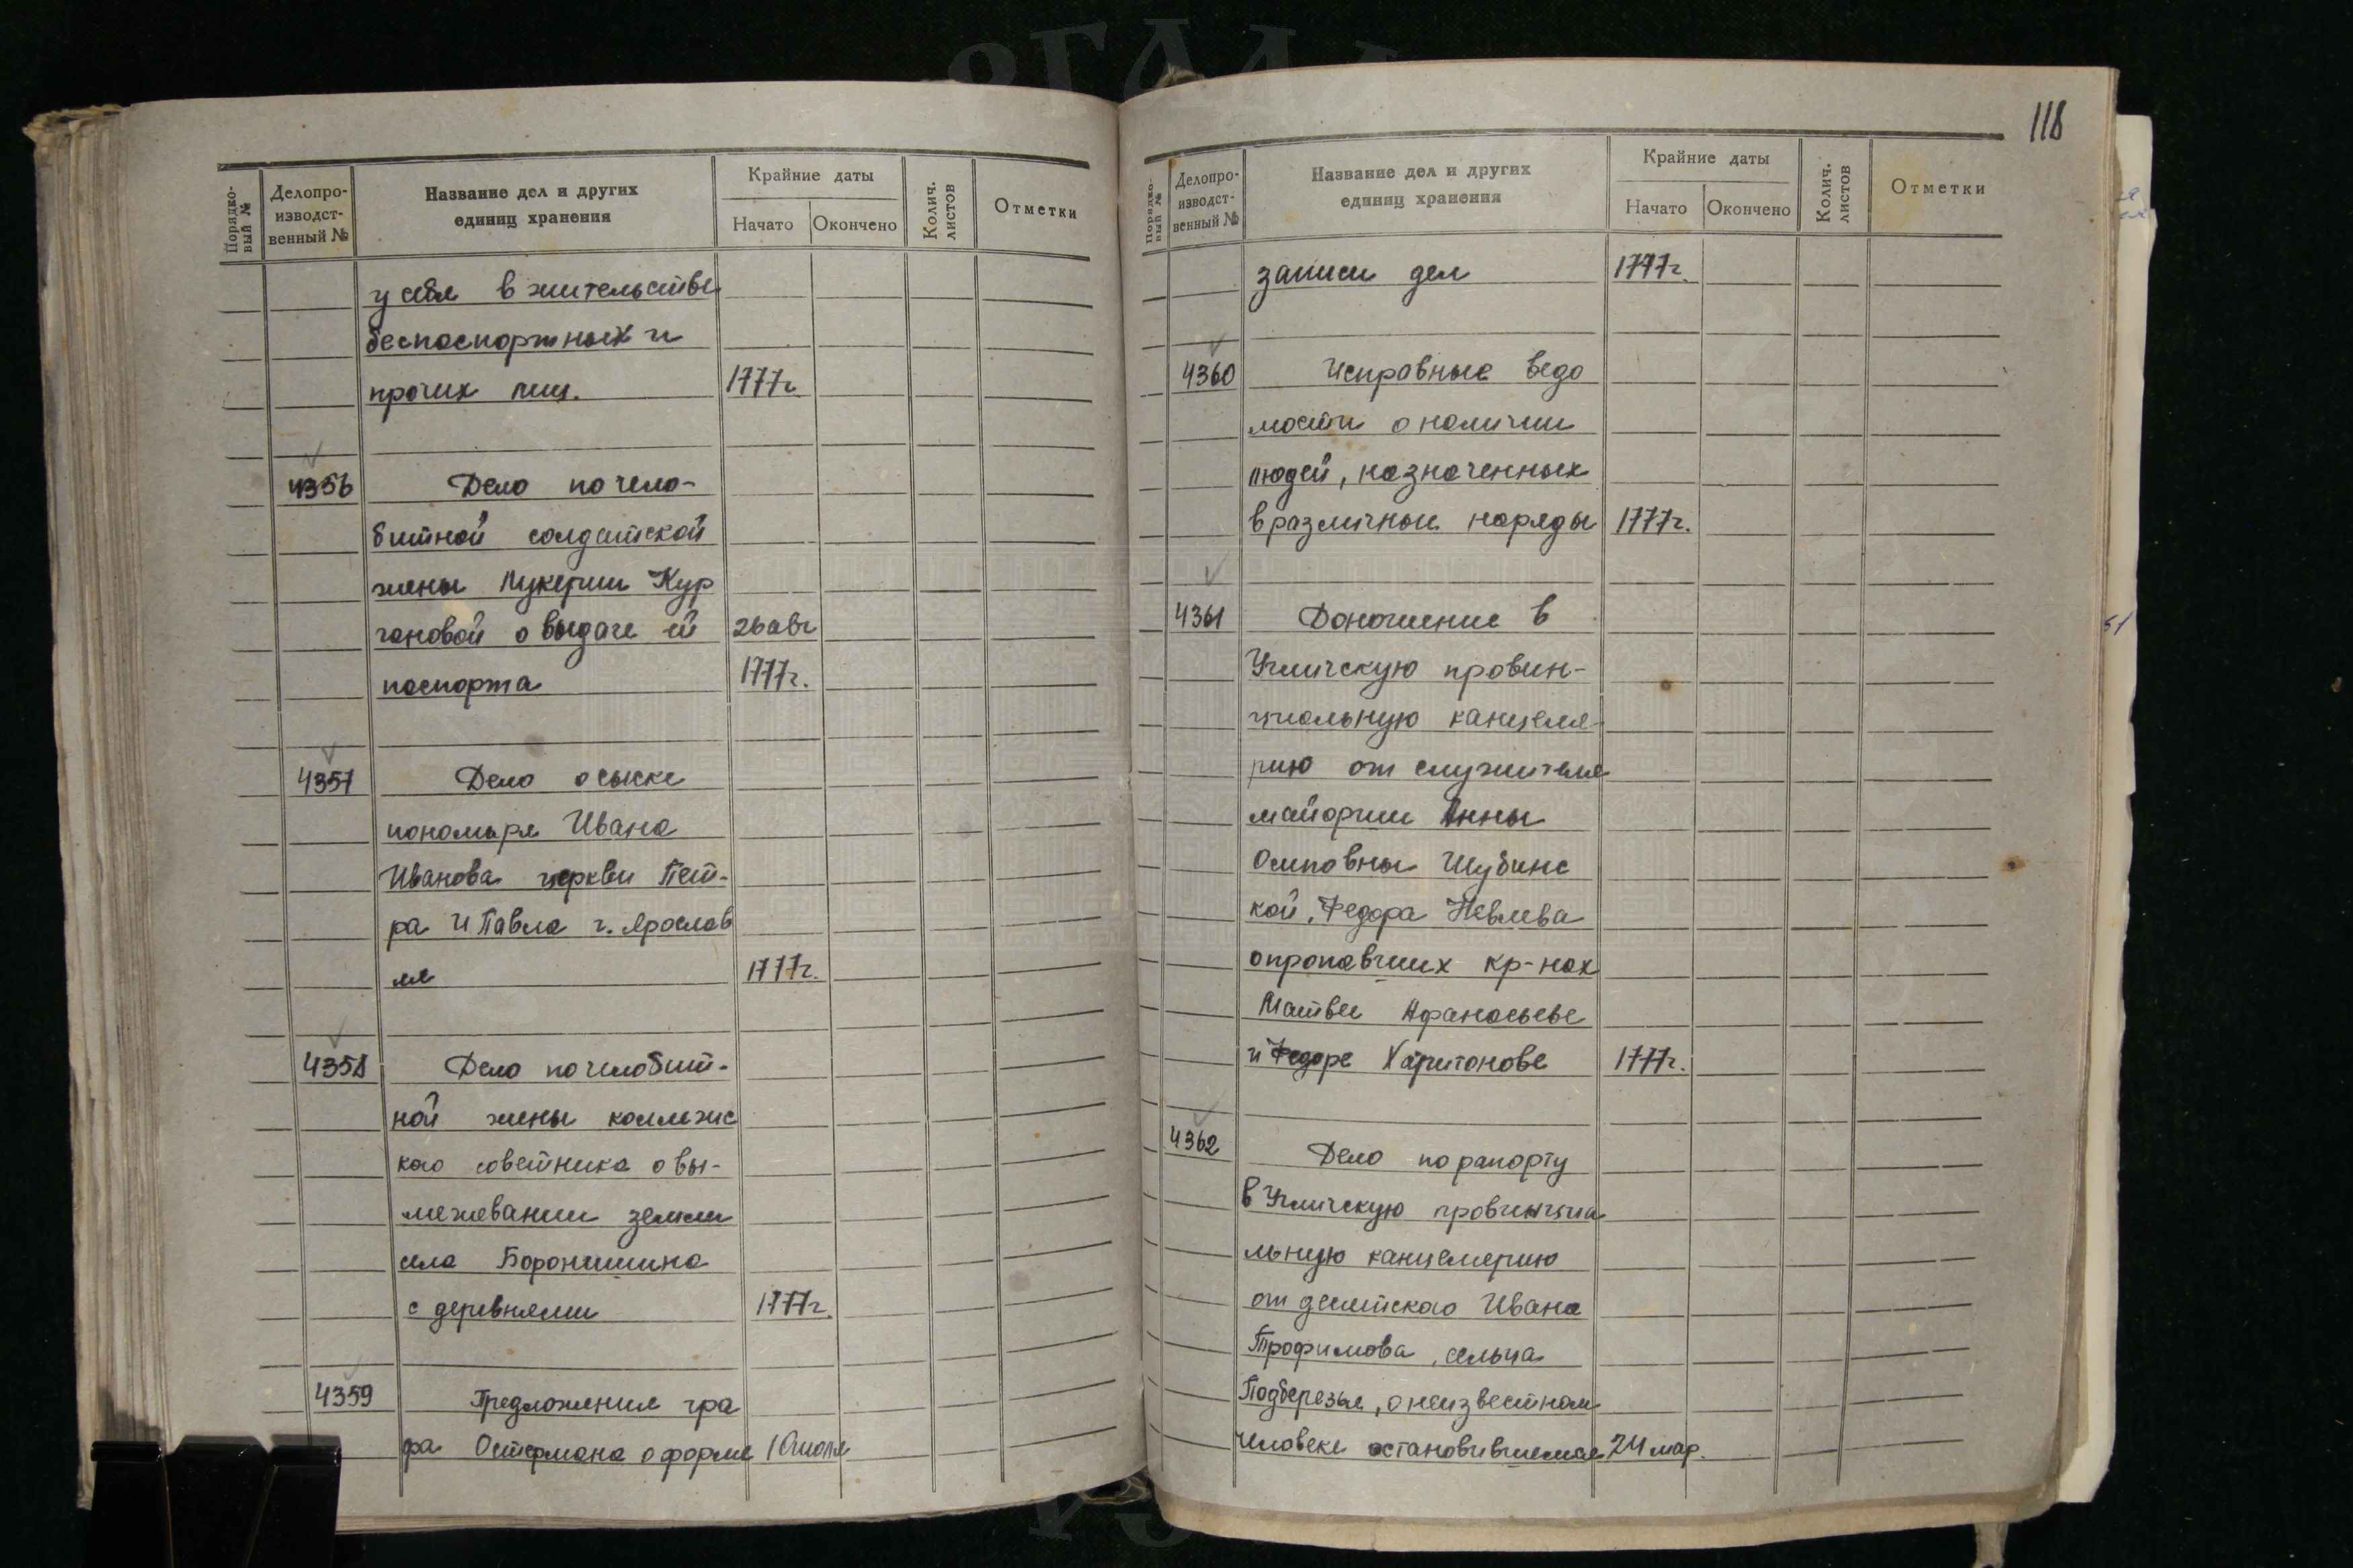 118
Порядко-
вый №
Делопро-
изводст-
венный №
Название дел и других
единиц хранения
Крайние даты
Начато
Окончено
Колич.
листов
Отметки
у себя в жительстве
беспаспортных и
прочих лиц. 1777г.
4356 Дело по чело-
битной солдатской
жены Лукерии Кур
гановой о выдаче ей 26 авг
паспорта 1777г.
4357 Дело о сыске
пономаря Ивана
Иванова церкви Пет-
ра и Павла г. Ярослав
ля 1777г.
4358 Дело по челобит-
ной жены коллежс
кого советника о вы-
межевании земли
села Боронишина
с деревнями 1777г.
4359 Предложение гра
фа Остермана о форме 10 июля
Порядко-
вый №
Делопро-
изводст-
венный №
Название дел и других
единиц хранения
Крайние даты
Начато
Окончено
Колич.
листов
Отметки
записи дел 1777г.
4360 Исправные ведо
мости о наличии
людей, назначенных
в различные наряды 1777г.
4361 Доношение в
Угличскую провин-
циальную канцеля-
рию от служителя
майорши Анны
Осиповны Шубинс
кой, Федора Невлева
о пропавших кр-нах
Матвее Афанасьеве
и Федоре Харитонове 1777г.
4362 Дело по рапорту
в Угличскую провинциа
льную канцелярию
от десятского Ивана
Трофимова, сельца
Подберезье, о неизвестном
человеке остановившемся 24 мар.